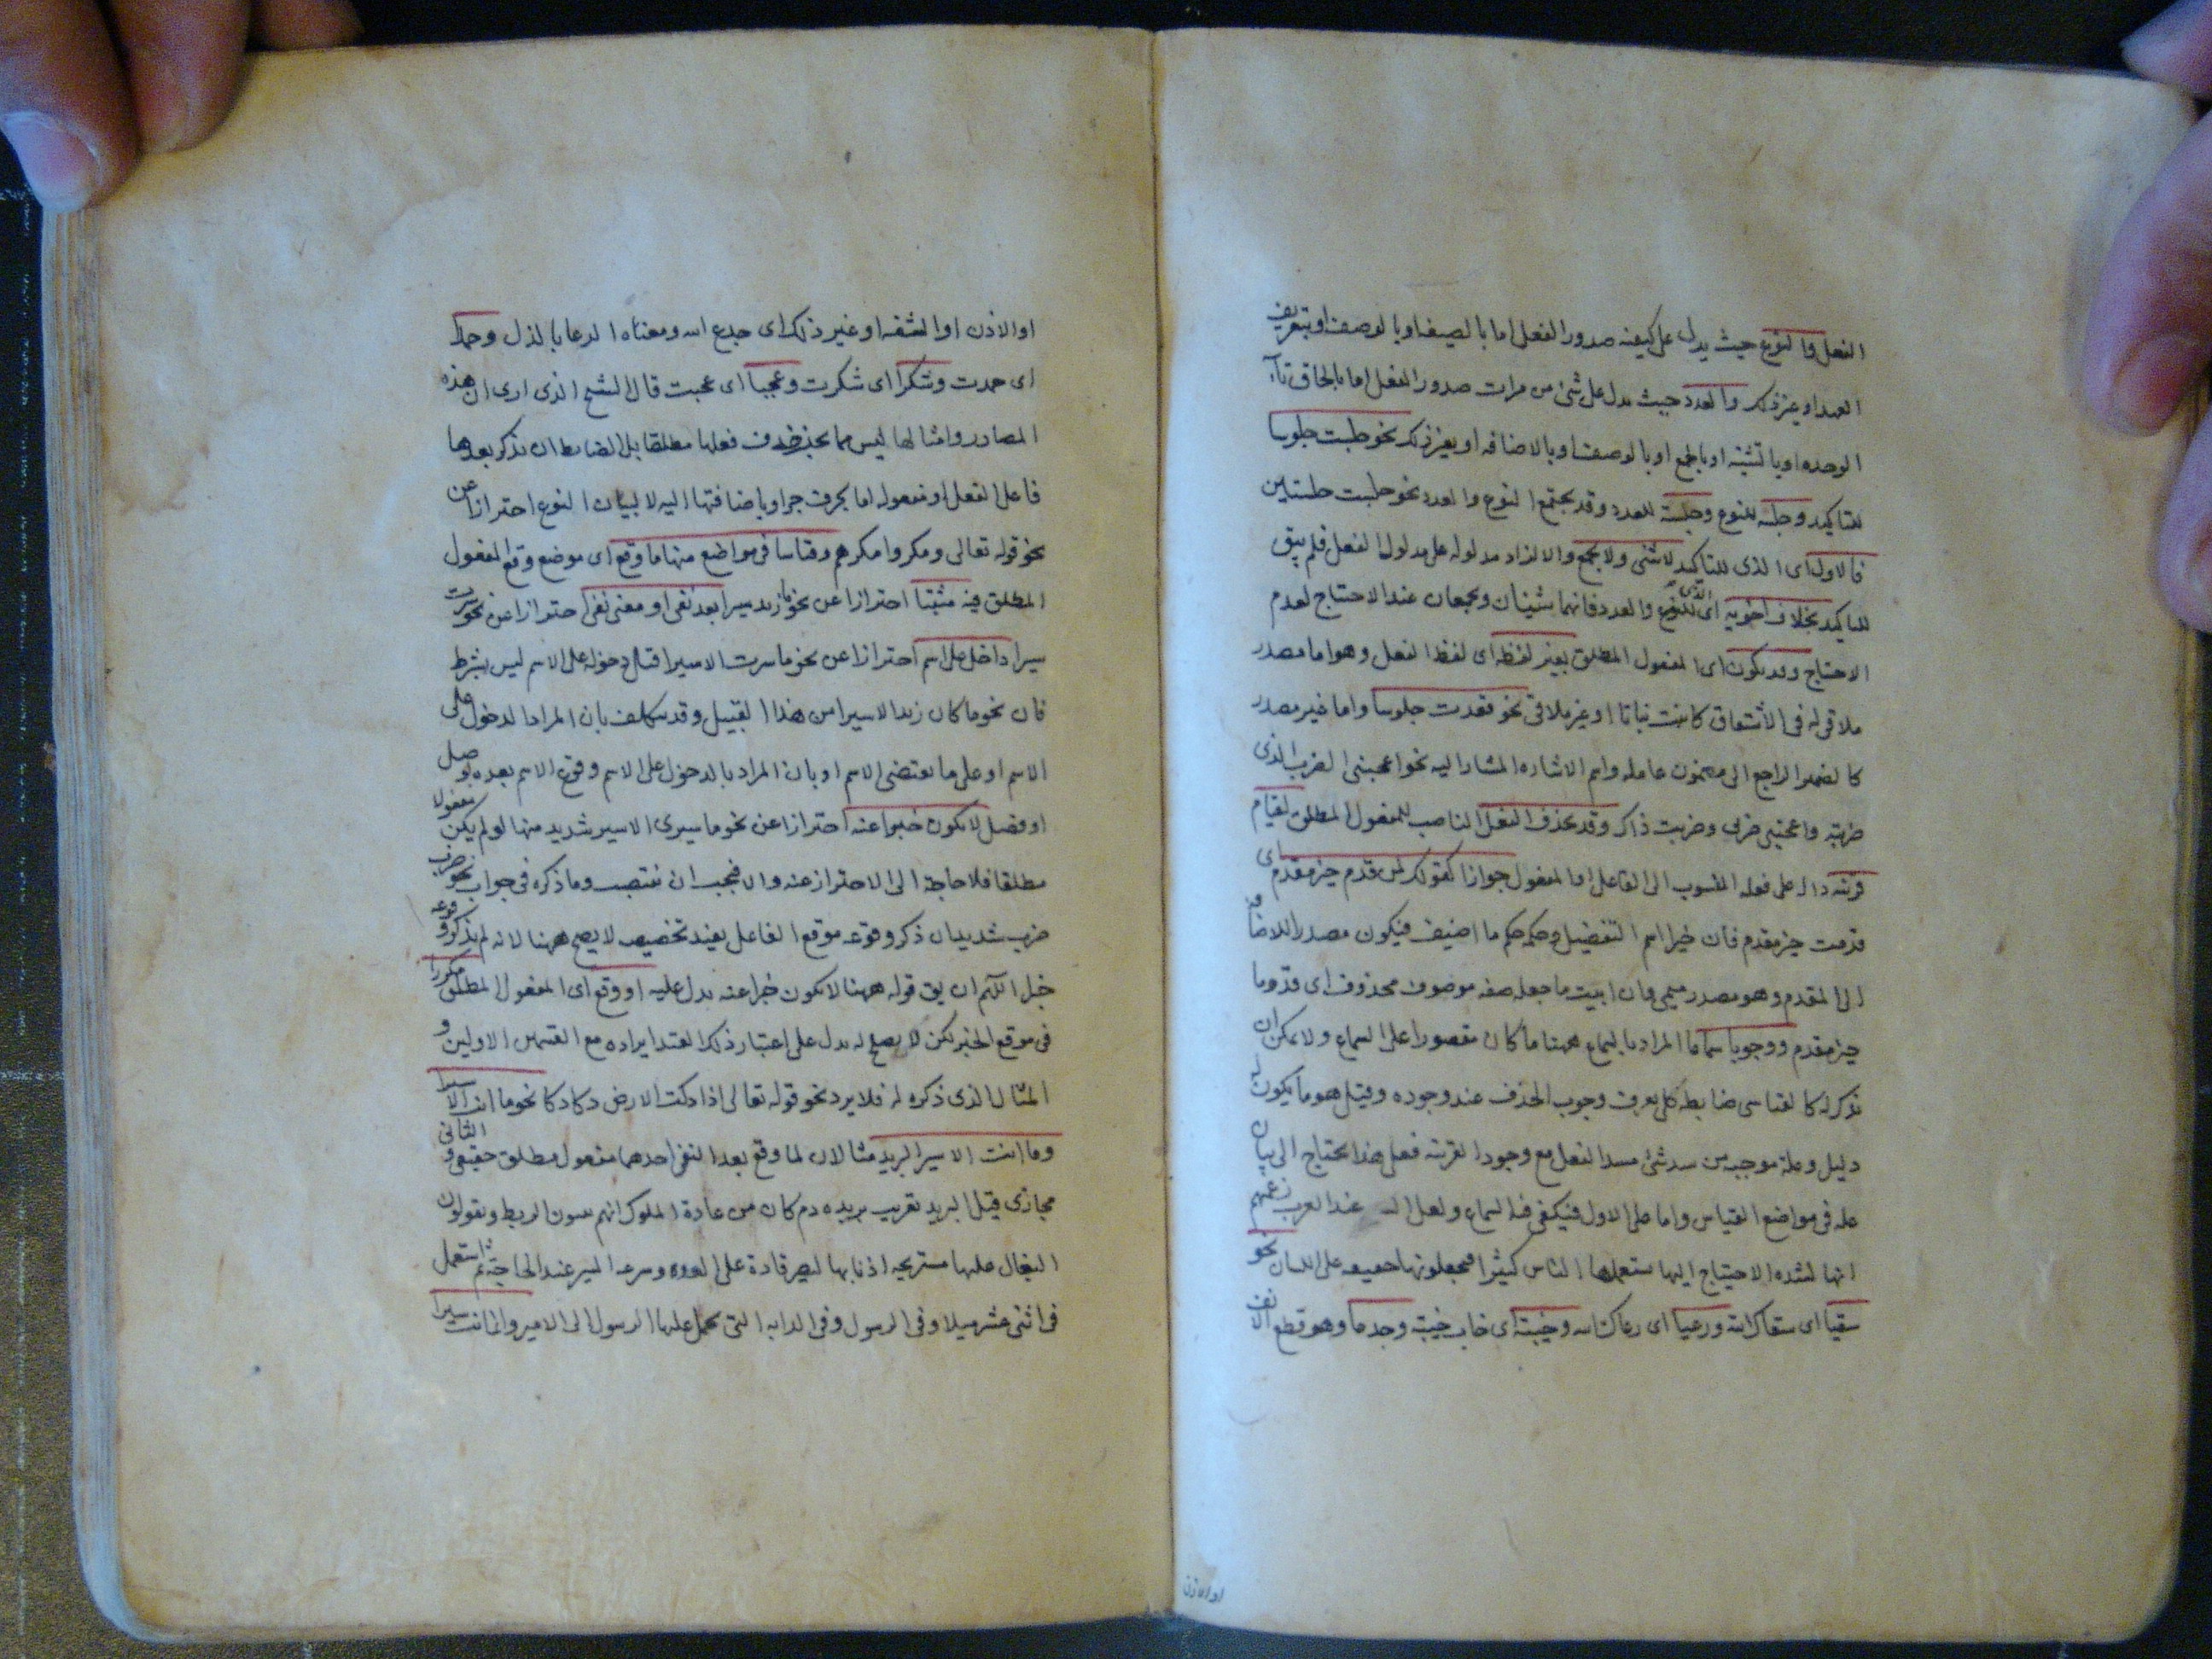 الفعل والنوع حيث يدل على كيفيه صدور الفعل اما بالصيغه او بالوصف او بتعريف
العهد او غير ذلك والعدد حيث يدل على شئ من مرات صدور الفعل اما بالحاق تاء
الوحده او بالتثنيه او بالجمع او بالوصف او بالاضافه او بغير ذلك نحو جلست جلوسا
للتاكيد وجلسه للنوع وجلسة للعدد وقد يجتمع النوع والعدد نحو جلست جلستين
فالاول اى الذى للتاكيد لا يثنى ولا يجمع والا لزاد مدلوله على مدلول الفعل فلم يبق
للتاكيد بخلاف اخويه اى الذى للنوع والعدد فانهما يثنيان ويجمعان عند الاحتياج لعدم
الاحتياج وقد يكون اى المفعول المطلق بغير لفظه اى لفظ الفعل وهو اما مصدر
ملاق له فى الاشتقاق كانبت نباتا او غير ملاق نحو قعدت جلوسا واما غير مصدر
كالضمير الراجع الى مضمون عامله واسم الاشاره المشار اليه نحو اعجبنى الضرب الذى
ضربته واعجبنى ضربى وضربت ذاك وقد يحذف الفعل الناصب للمفعول المطلق لقيام
قرينه داله على فعله المنسوب الى الفاعل او المفعول جوازا كقولك لمن قدم خير مقدم اى
قدمت خير مقدم فان خيرا اسم التفضيل وحكمه حكم ما اضيف فيكون مصدرا للاضافه
الى المقدم وهو مصدر ميمى وان ابيت ما جعله صفه موصوف محذوف اى قدوما
خير مقدم ووجوبا سماعا المراد بالسماع ههنا ما كان مقصورا على السماع ولا يمكن ان
يذكر له كالقياسى ضابطه كلى يعرف وجوب الحذف عند وجوده وقيل هو ما يكون له
دليل وعلة موجبه من سد شئ مسد الفعل مع وجود القرينه فعلى هذا يحتاج الى بيان
عله فى مواضع القياس واما على الاول فيكفى فيه السماع ولعل عند العرب زعمهم
انها لشده الاحتياج اليها يستعملها الناس كثيرا فيجعلونها خفيفه على اللسان نحو
سقيا اى سقاك الله ورعيا اى رعاك الله وخيبة اى خاب خيبة وجدعا وهو قطع الانف
او الاذن
او الاذن او الشفه او غير ذلك اى جدع الله ومعناه الدعا بالذل وحمدا
اى حمدت وشكرا اى شكرت وعجبا اى عجبت قال الشيخ الذى ارى ان هذه
المصادر وامثالها ليس مما يحذف فعلها مطلقا بل الضابط ان يذكر بعدها
فاعل الفعل او مفعوله اما بحرف جر او باضافتها اليه لا لبيان النوع احترازا عن
نحو قوله تعالى ومكروا مكرهم وقياسا فى مواضع منها ما وقع اى موضع وقع المفعول
المطلق فيه مثبتا احترازا عن نحو ما زيد سيرا بعد نفى او معنى نفى احترازا عن نحو سرت
سيرا داخل على اسم احترازا عن نحو ما سرت الا سيرا قيل دخوله على الاسم ليس بشرط
فان نحو ما كان زيد الا سيرا من هذا القبيل وقد يتكلف بان المراد الدخول على
الاسم او على ما يقتضى الاسم او بان المراد بالدخول على الاسم وقوع الاسم بعده بوصل
او فصل لا يكون خبرا عنه احترازا عن نحو ما سيرى الا سير شديد منها لو لم يكن مفعولا
مطلقا فلا حاجة الى الاحتراز عنه والا فيجب ان ينتصب وما ذكره فى جواب نحو ضرب
ضرب شديد ان ذكر وقوعه موقع الفاعل يفيد تخصيص لا يصح ههنا لانه لم يذكر وقوعه
خبر اللهم ان يق قوله ههنا لا يكون خبرا عنه يدل عليه او وقع اى المفعول المطلق مكررا
فى موقع الخبر لكن لا يصلح له يدل على اعتبار ذلك القيد ايراده مع القسمين الاولين و
المثال الذى ذكره له فلا يرد نحو قوله تعالى اذا دكت الارض دكا دكا نحو ما انت الا سيرا
وما انت الا سير البريد مثالان لما وقع بعد النفى احدهما مفعول مطلق حقيقى والثانى
مجازى قيل البريد تعريب بريده دم كان من عادة الملوك انهم الربط ويقولون
البغال عليها مستريحه اذنابها لتصير قادة على العدو وسرعه السير عند الحاجة ثم استعمل
فى اثنى عشر ميلا وفى الرسول وفى الدابه التى يحمل عليها الرسول الى الامير وانما انت سيرا